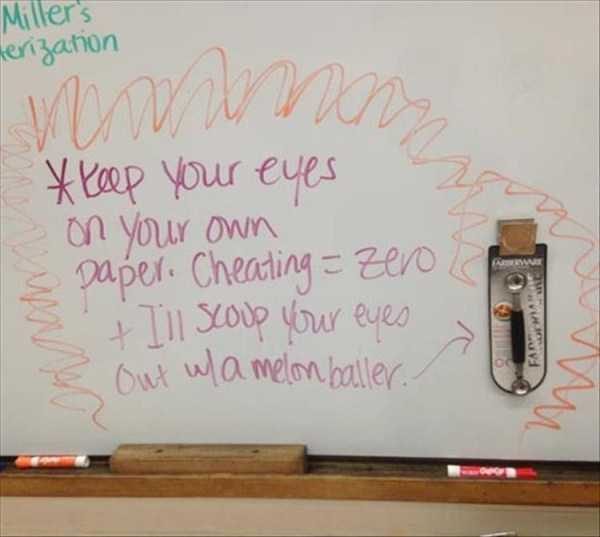 Miller's
erization
*Keep your eyes
on your own
paper. Cheating = zero
+ I'll scoop your eyes
out w/a melon baller.
FARBERWARE
EXPO